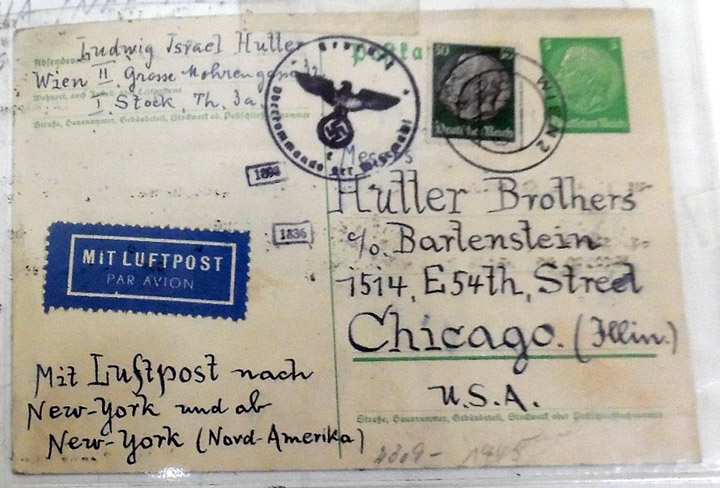 Ludwig Israel Hutter
Wien II, Grosse Mohrengasse
I. Stock, Th. 3a.
Straße, Hausnummer, Gebäudeteil, Stockwerk od. Postschließfachnummer
Postka
Geprüft
Oberkommando der Wehrmacht
50 50
Deutsches Reich
WIEN 2
5 5
Deutsches Reich
1836
Messrs
Hutter Brothers
c/o Bartenstein
1514, E 54th, Street
Chicago. (Illin.)
U.S.A.
Straße, Hausnummer, Gebäudeteil, Stockwerk oder Postschließfachnummer
MIT LUFTPOST
PAR AVION
Mit Luftpost nach
New-York und ab
New-York (Nord-Amerika)